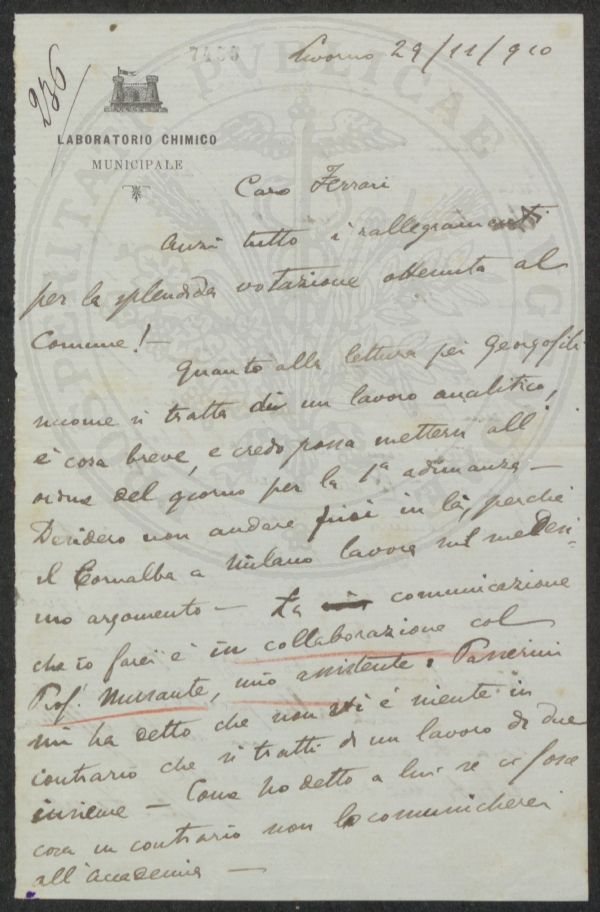 7436
Livorno 29/11/910
236
LABORATORIO CHIMICO
MUNICIPALE
Caro Ferrari
Anzi tutto i rallegramenti
per la splendida votazione ottenuta al
Comune! —
Quanto alla lettura pei Georgofili
siccome si tratta di un lavoro analitico,
è cosa breve, e credo possa mettersi all'
ordine del giorno per la 1ª adunanza —
Desidero non andare più in là, perché
il Cornalba a Milano lavora sul medesi-
mo argomento — La comunicazione
che io farei è in collaborazione col
Prof. Mussante, mio assistente. Passerini
mi ha detto che non vi è niente in
contrario che si tratti di un lavoro di due
insieme — Come ho detto a lui se ci fosse
cosa in contrario non lo comunicherei
all'Accademia —